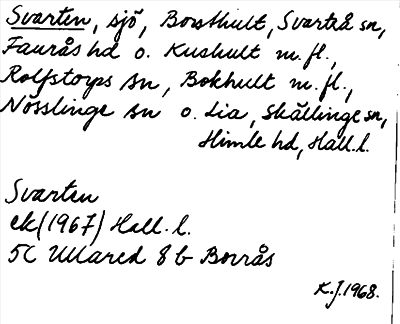 Svarten, sjö, Bossthult, Svartrå sn,
Faurås hd o. Kushult m.fl.,
Rolfstorps sn, Bokhult m.fl.,
Nösslinge sn o. Lia, Skällinge sn,
Himle hd, Hall. l.
Svarten
ek (1967) Hall. l.
5C Ullared 8 b Borrås
K.J. 1968.